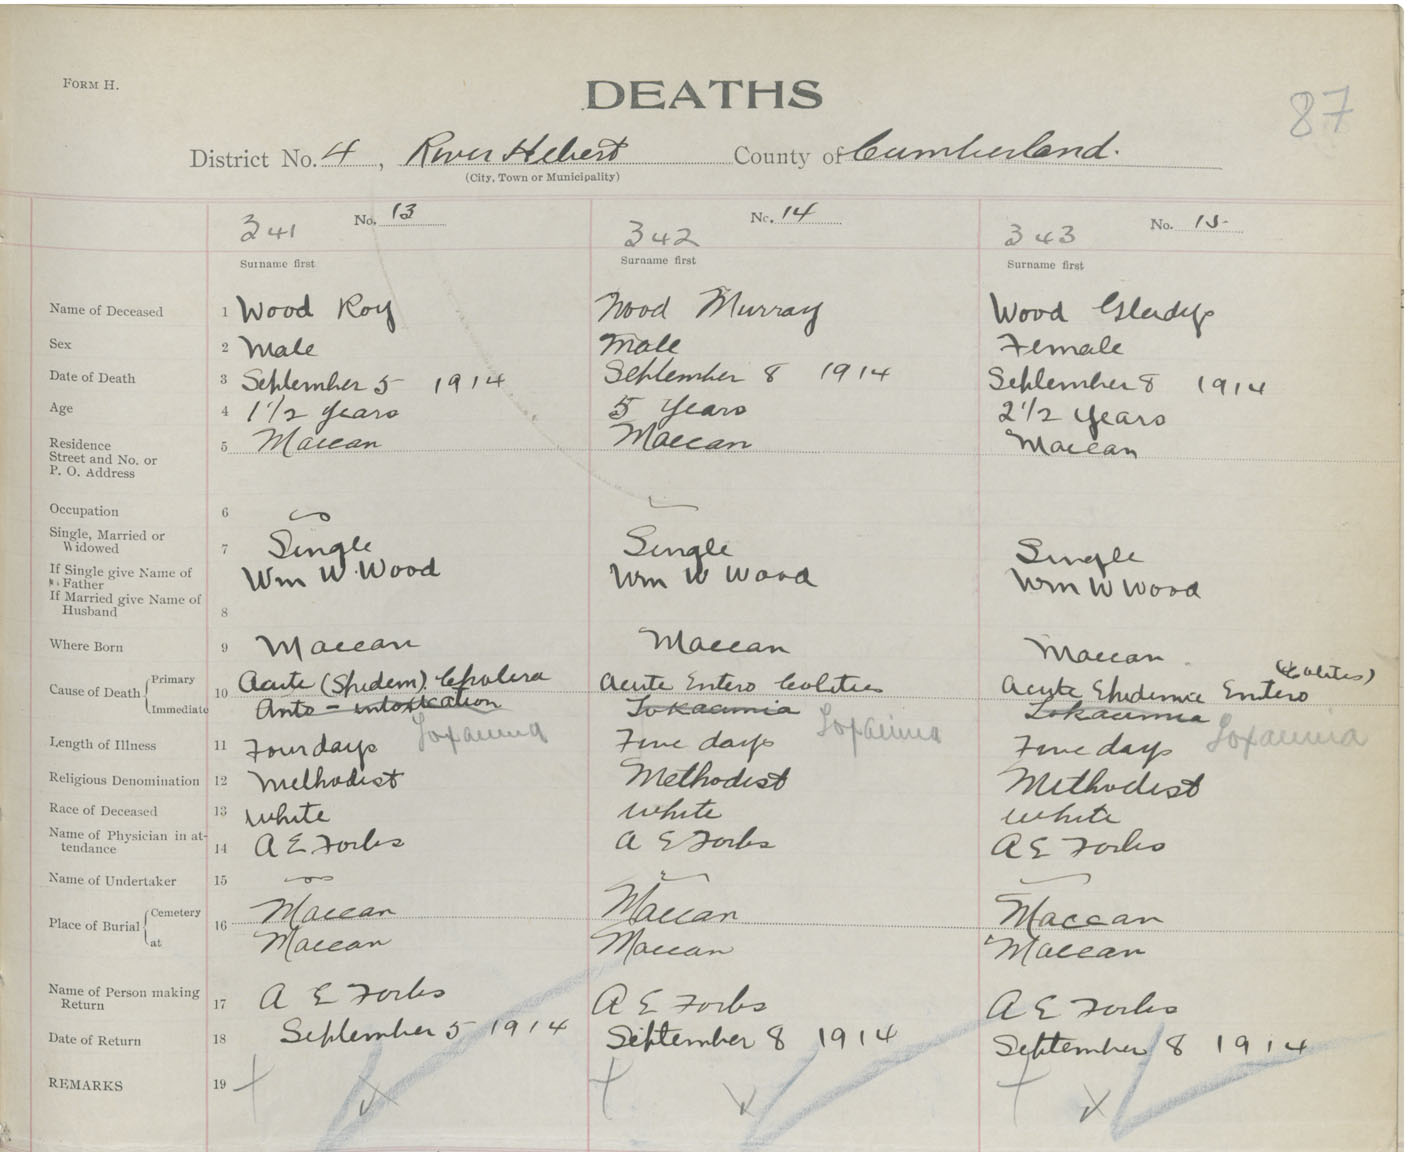 FORM H.
DEATHS
87
District No. 4, River Hebert County of Cumberland.
(City, Town or Municipality)
341 No. 13 342 No. 14 343 No. 15
Surname first Surname first Surname first
Name of Deceased 1 Wood Roy Wood Murray Wood Gladys
Sex 2 Male Male Female
Date of Death 3 September 5 1914 September 8 1914 September 8 1914
Age 4 1 1/2 years 5 years 2 1/2 years
Residence 5 Maccan Maccan Maccan
Street and No. or
P. O. Address
Occupation 6
Single, Married or
Widowed 7 Single Single Single
If Single give Name of Wm W. Wood Wm W Wood Wm W Wood
Father
If Married give Name of
Husband 8
Where Born 9 Maccan Maccan Maccan
Cause of Death Primary 10 Acute (Epidem) Cholera Acute Entero Colitis Acute Epidemic Entero (Colitis)
Immediate Auto-intoxication Toxaemia Toxaemia
Toxaemia Toxaemia Toxaemia
Length of Illness 11 Four days Five days Five days
Religious Denomination 12 Methodist Methodist Methodist
Race of Deceased 13 White White White
Name of Physician in at-
tendance 14 A E Forbes A E Forbes A E Forbes
Name of Undertaker 15
Place of Burial Cemetery 16 Maccan Maccan Maccan
at Maccan Maccan Maccan
Name of Person making
Return 17 A E Forbes A E Forbes A E Forbes
Date of Return 18 September 5 1914 September 8 1914 September 8 1914
REMARKS 19